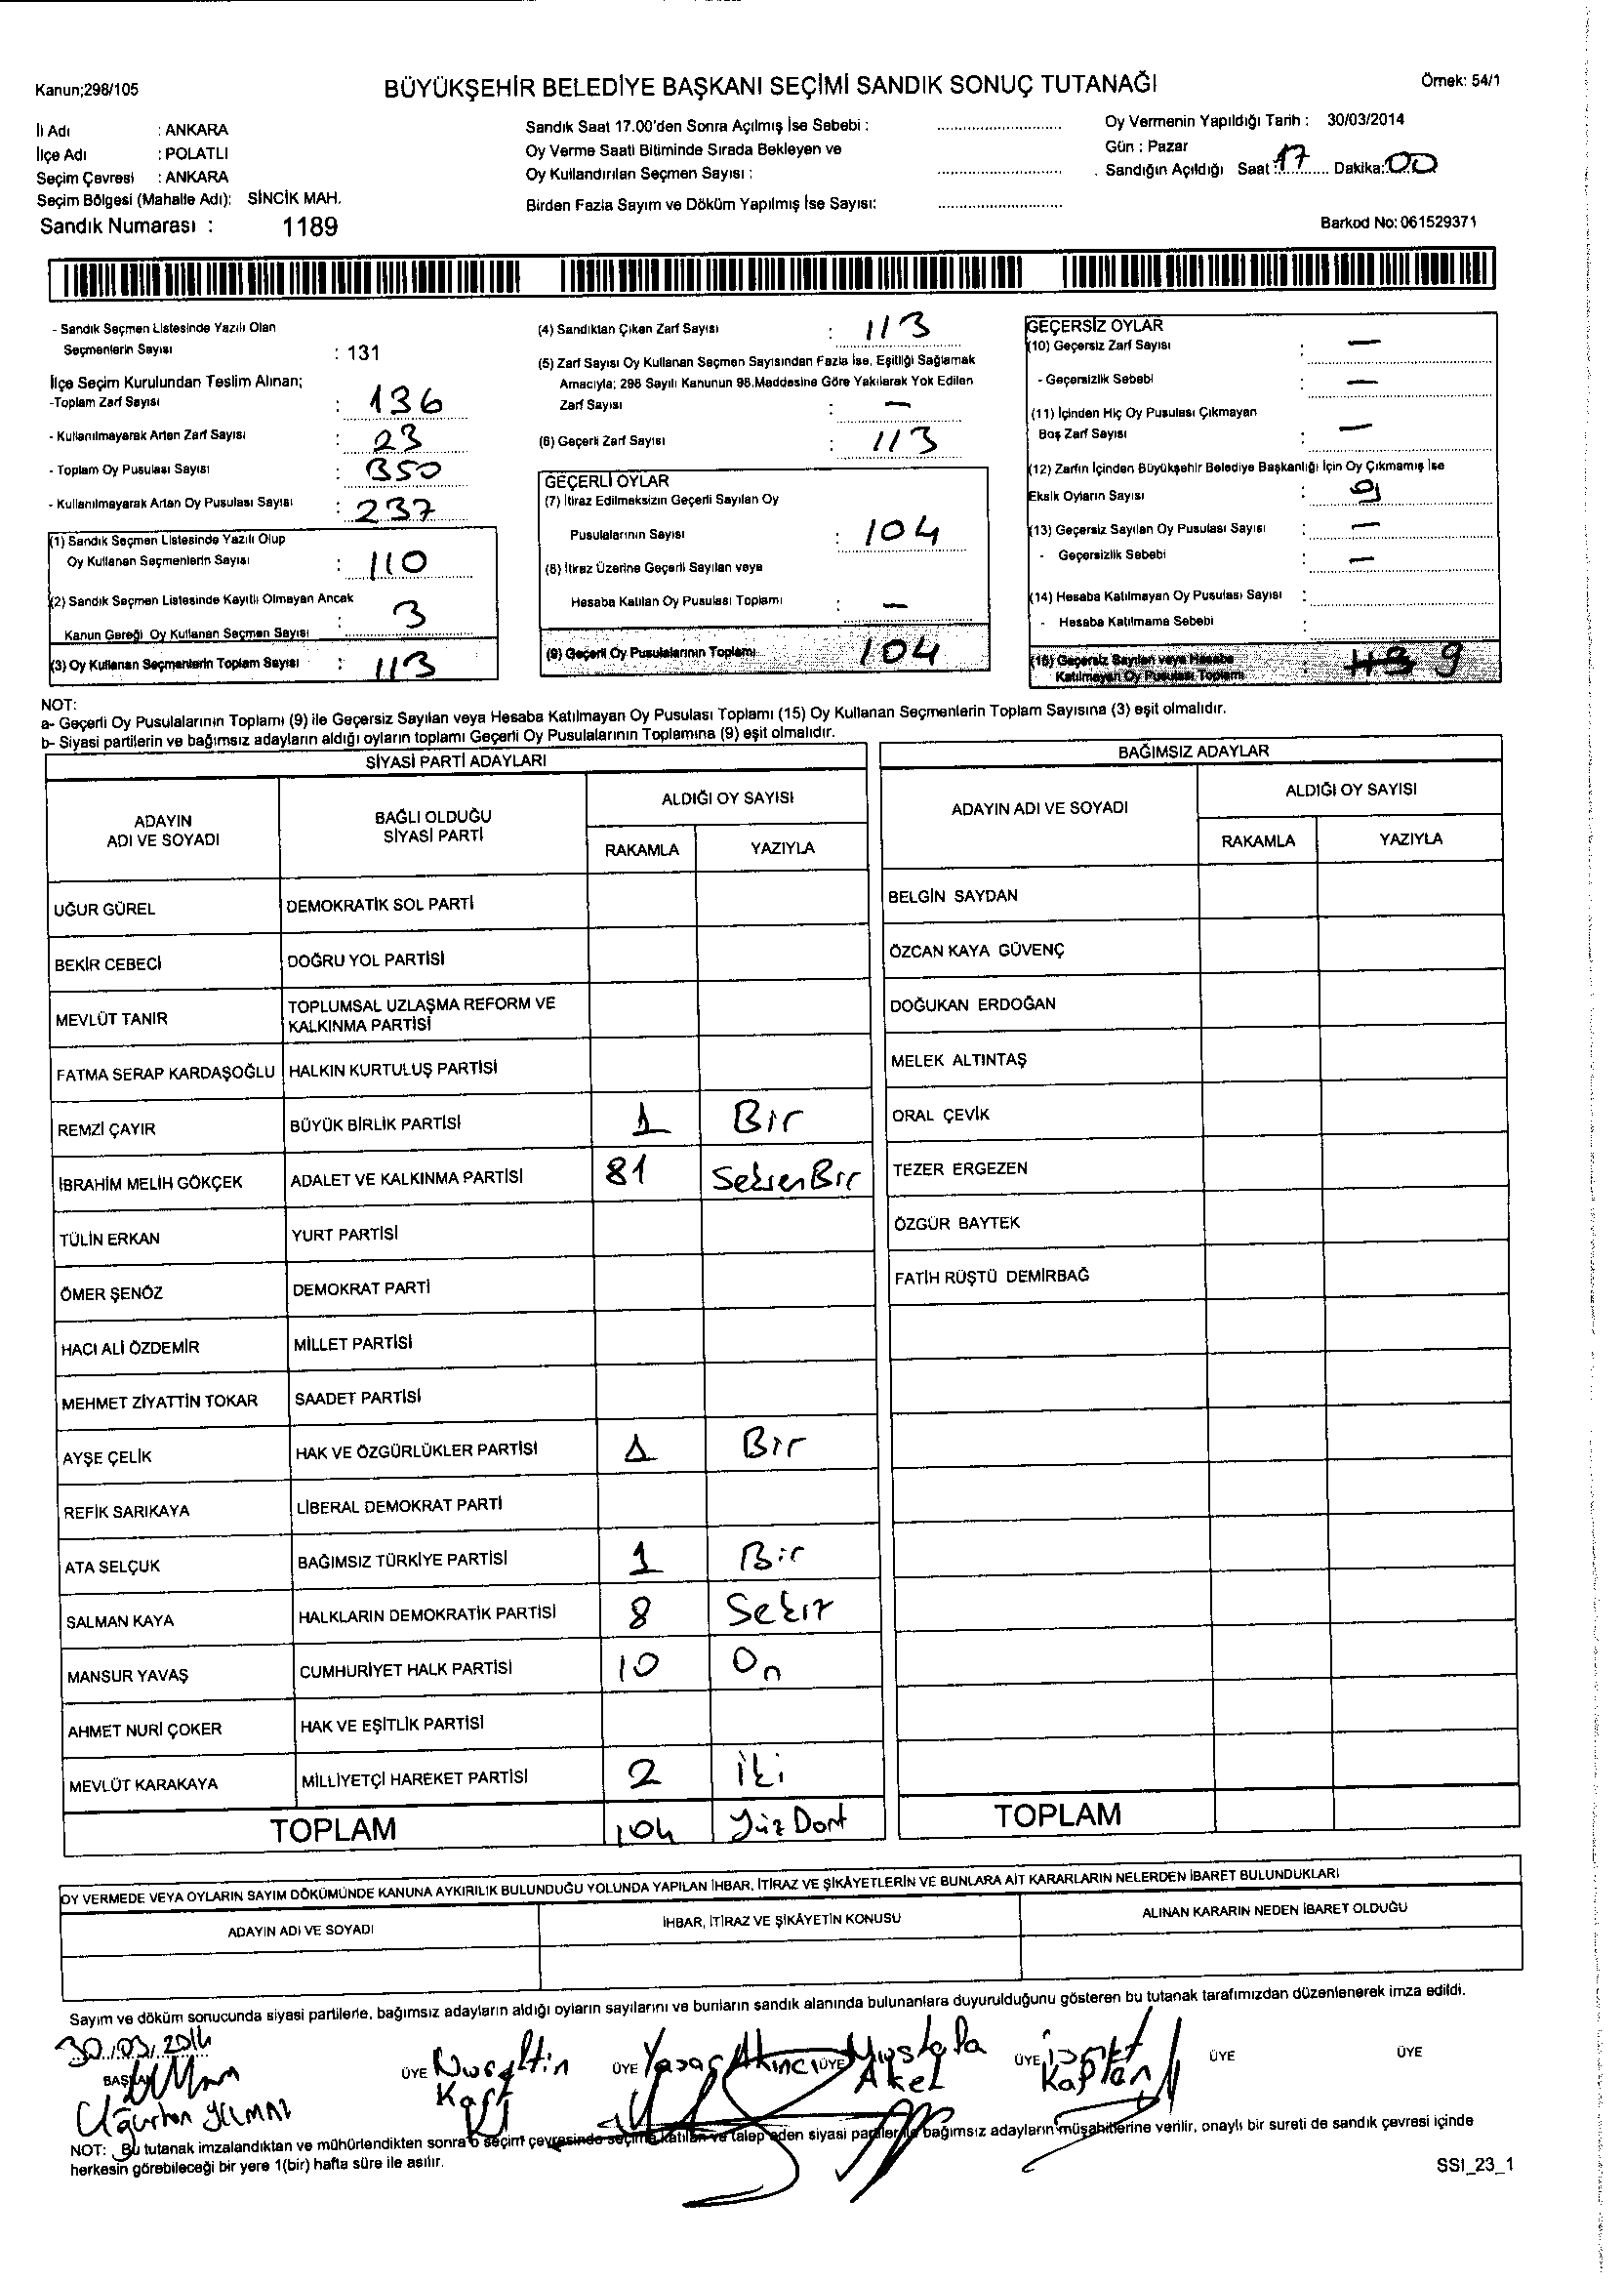 Kanun;298/105
BÜYÜKŞEHİR BELEDİYE BAŞKANI SEÇİMİ SANDIK SONUÇ TUTANAĞI
Örnek: 54/1
İl Adı : ANKARA
İlçe Adı : POLATLI
Seçim Çevresi : ANKARA
Seçim Bölgesi (Mahalle Adı): SİNCİK MAH.
Sandık Numarası : 1189
Sandık Saat 17.00'den Sonra Açılmış İse Sebebi :
Oy Verme Saati Bitiminde Sırada Bekleyen ve
Oy Kullandırılan Seçmen Sayısı :
Birden Fazla Sayım ve Döküm Yapılmış İse Sayısı:
Oy Vermenin Yapıldığı Tarih : 30/03/2014
Gün : Pazar
Sandığın Açıldığı Saat : 17 Dakika: 00
Barkod No: 061529371
- Sandık Seçmen Listesinde Yazılı Olan
Seçmenlerin Sayısı : 131
İlçe Seçim Kurulundan Teslim Alınan;
-Toplam Zarf Sayısı : 136
- Kullanılmayarak Artan Zarf Sayısı : 23
- Toplam Oy Pusulası Sayısı : 350
- Kullanılmayarak Artan Oy Pusulası Sayısı : 237
(1) Sandık Seçmen Listesinde Yazılı Olup
Oy Kullanan Seçmenlerin Sayısı : 110
(2) Sandık Seçmen Listesinde Kayıtlı Olmayan Ancak
Kanun Gereği Oy Kullanan Seçmen Sayısı : 3
(3) Oy Kullanan Seçmenlerin Toplam Sayısı : 113
(4) Sandıktan Çıkan Zarf Sayısı : 113
(5) Zarf Sayısı Oy Kullanan Seçmen Sayısından Fazla İse, Eşitliği Sağlamak
Amacıyla; 298 Sayılı Kanunun 98.Maddesine Göre Yakılarak Yok Edilen
Zarf Sayısı : —
(6) Geçerli Zarf Sayısı : 113
GEÇERLİ OYLAR
(7) İtiraz Edilmeksizin Geçerli Sayılan Oy
Pusulalarının Sayısı : 104
(8) İtiraz Üzerine Geçerli Sayılan veya
Hesaba Katılan Oy Pusulası Toplamı : —
(9) Geçerli Oy Pusulalarının Toplamı 104
GEÇERSİZ OYLAR
(10) Geçersiz Zarf Sayısı : —
- Geçersizlik Sebebi : —
(11) İçinden Hiç Oy Pusulası Çıkmayan
Boş Zarf Sayısı : —
(12) Zarfın İçinden Büyükşehir Belediye Başkanlığı İçin Oy Çıkmamış İse
Eksik Oyların Sayısı : 9
(13) Geçersiz Sayılan Oy Pusulası Sayısı : —
- Geçersizlik Sebebi : —
(14) Hesaba Katılmayan Oy Pusulası Sayısı :
- Hesaba Katılmama Sebebi :
(15) Geçersiz Sayılan veya Hesaba
Katılmayan Oy Pusulası Toplamı : 113 9
NOT:
a- Geçerli Oy Pusulalarının Toplamı (9) ile Geçersiz Sayılan veya Hesaba Katılmayan Oy Pusulası Toplamı (15) Oy Kullanan Seçmenlerin Toplam Sayısına (3) eşit olmalıdır.
b- Siyasi partilerin ve bağımsız adayların aldığı oyların toplamı Geçerli Oy Pusulalarının Toplamına (9) eşit olmalıdır.
SİYASİ PARTİ ADAYLARI
ADAYIN ADI VE SOYADI BAĞLI OLDUĞU SİYASİ PARTİ ALDIĞI OY SAYISI
RAKAMLA YAZIYLA
UĞUR GÜREL DEMOKRATİK SOL PARTİ
BEKİR CEBECİ DOĞRU YOL PARTİSİ
MEVLÜT TANIR TOPLUMSAL UZLAŞMA REFORM VE KALKINMA PARTİSİ
FATMA SERAP KARDAŞOĞLU HALKIN KURTULUŞ PARTİSİ
REMZİ ÇAYIR BÜYÜK BİRLİK PARTİSİ 1 Bir
İBRAHİM MELİH GÖKÇEK ADALET VE KALKINMA PARTİSİ 81 SeksenBir
TÜLİN ERKAN YURT PARTİSİ
ÖMER ŞENÖZ DEMOKRAT PARTİ
HACI ALİ ÖZDEMİR MİLLET PARTİSİ
MEHMET ZİYATTİN TOKAR SAADET PARTİSİ
AYŞE ÇELİK HAK VE ÖZGÜRLÜKLER PARTİSİ 1 Bir
REFİK SARIKAYA LİBERAL DEMOKRAT PARTİ
ATA SELÇUK BAĞIMSIZ TÜRKİYE PARTİSİ 1 Bir
SALMAN KAYA HALKLARIN DEMOKRATİK PARTİSİ 8 Sekiz
MANSUR YAVAŞ CUMHURİYET HALK PARTİSİ 10 On
AHMET NURİ ÇOKER HAK VE EŞİTLİK PARTİSİ
MEVLÜT KARAKAYA MİLLİYETÇİ HAREKET PARTİSİ 2 İki
TOPLAM 104 YüzDört
BAĞIMSIZ ADAYLAR
ADAYIN ADI VE SOYADI ALDIĞI OY SAYISI
RAKAMLA YAZIYLA
BELGİN SAYDAN
ÖZCAN KAYA GÜVENÇ
DOĞUKAN ERDOĞAN
MELEK ALTINTAŞ
ORAL ÇEVİK
TEZER ERGEZEN
ÖZGÜR BAYTEK
FATİH RÜŞTÜ DEMİRBAĞ
TOPLAM
OY VERMEDE VEYA OYLARIN SAYIM DÖKÜMÜNDE KANUNA AYKIRILIK BULUNDUĞU YOLUNDA YAPILAN İHBAR, İTİRAZ VE ŞİKÂYETLERİN VE BUNLARA AİT KARARLARIN NELERDEN İBARET BULUNDUKLARI
ADAYIN ADI VE SOYADI İHBAR, İTİRAZ VE ŞİKÂYETİN KONUSU ALINAN KARARIN NEDEN İBARET OLDUĞU
Sayım ve döküm sonucunda siyasi partilerle, bağımsız adayların aldığı oyların sayılarını ve bunların sandık alanında bulunanlara duyurulduğunu gösteren bu tutanak tarafımızdan düzenlenerek imza edildi.
30.03.2014
BAŞKAN
Uğurhan YILMAZ
ÜYE Nurettin
ÜYE Yaşar Akıncı
ÜYE Mustafa Akel
ÜYE İsmet Kaplan
ÜYE
ÜYE
NOT: Bu tutanak imzalandıktan ve mühürlendikten sonra o seçim çevresinde seçime katılan ve talep eden siyasi partiler ile bağımsız adayların müşahitlerine verilir, onaylı bir sureti de sandık çevresi içinde
herkesin görebileceği bir yere 1(bir) hafta süre ile asılır.
SSI_23_1